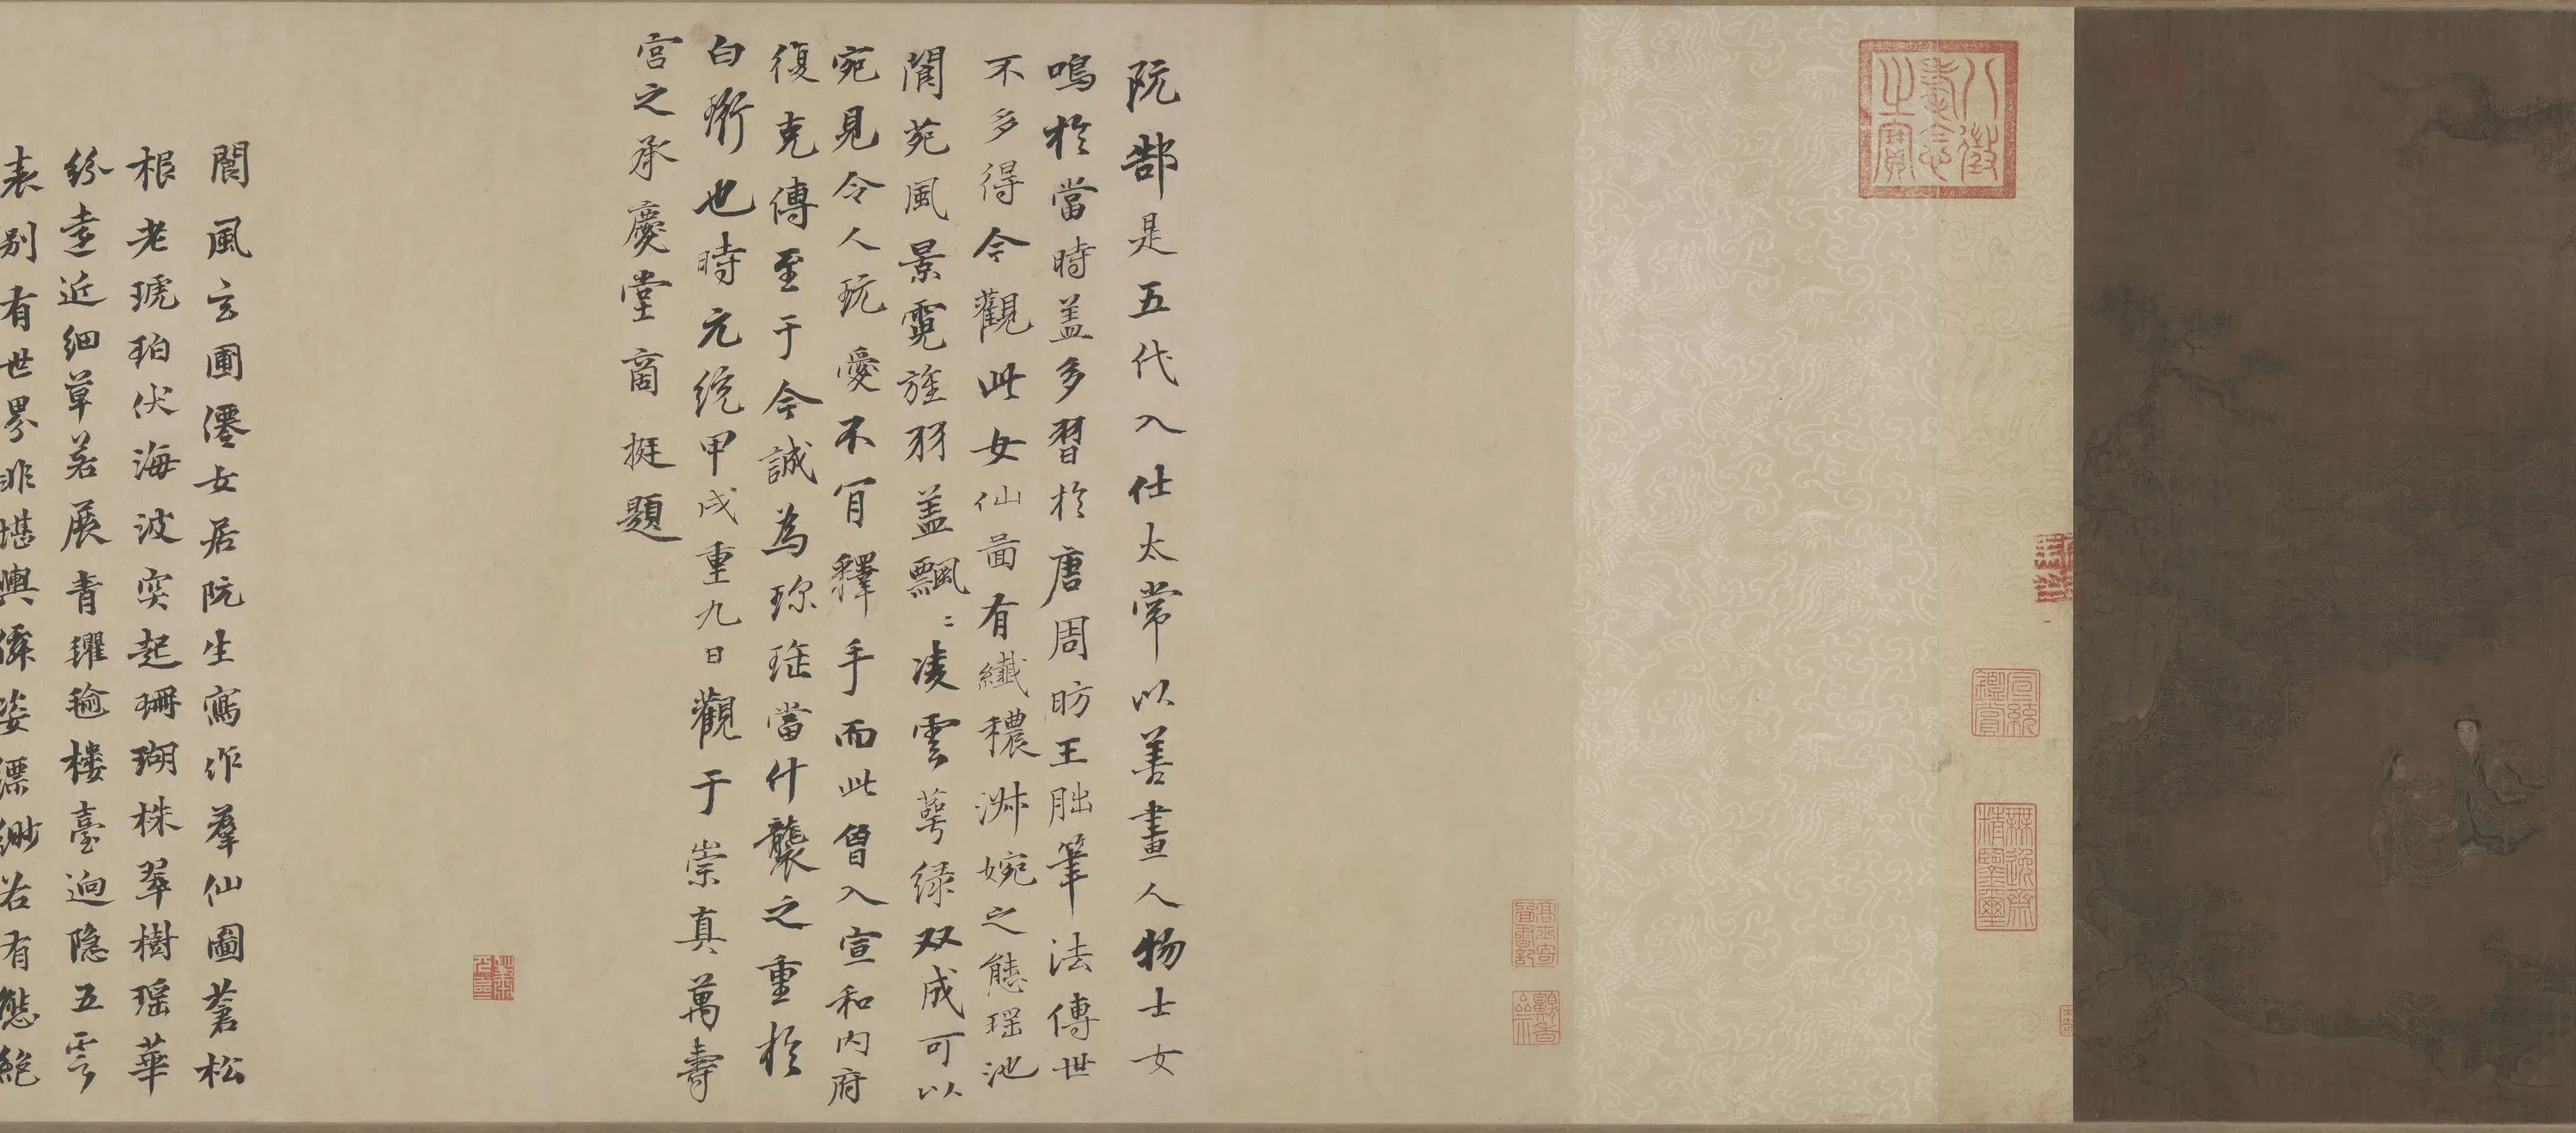 八徵耄念之寶
宣統鑒賞
無逸齋精鑒璽
阮郜是五代入仕太常以善畫人物士女
鳴於當時蓋多習於唐周昉王朏筆法傳世
不多得今觀此女仙啚有纖穠淋婉之態瑶池
閬苑風景霓旌羽蓋飄〻凌雲萼緑双成可以
宛見令人玩愛不肎釋手而此曾入宣和内府
復克傳至于今誠為珎珤當什襲之重於
白珩也時元統甲戌重九日觀于崇真萬壽
宫之承慶堂商挺題
閬風玄圃僊女居阮生寫作羣仙圖蒼松
根老琥珀伏海波突起珊瑚株翠樹瑶華
紛逺近細草若展青氍毹樓臺迥隐五雲
表别有世界非堪輿僊姿漂緲若有態絶